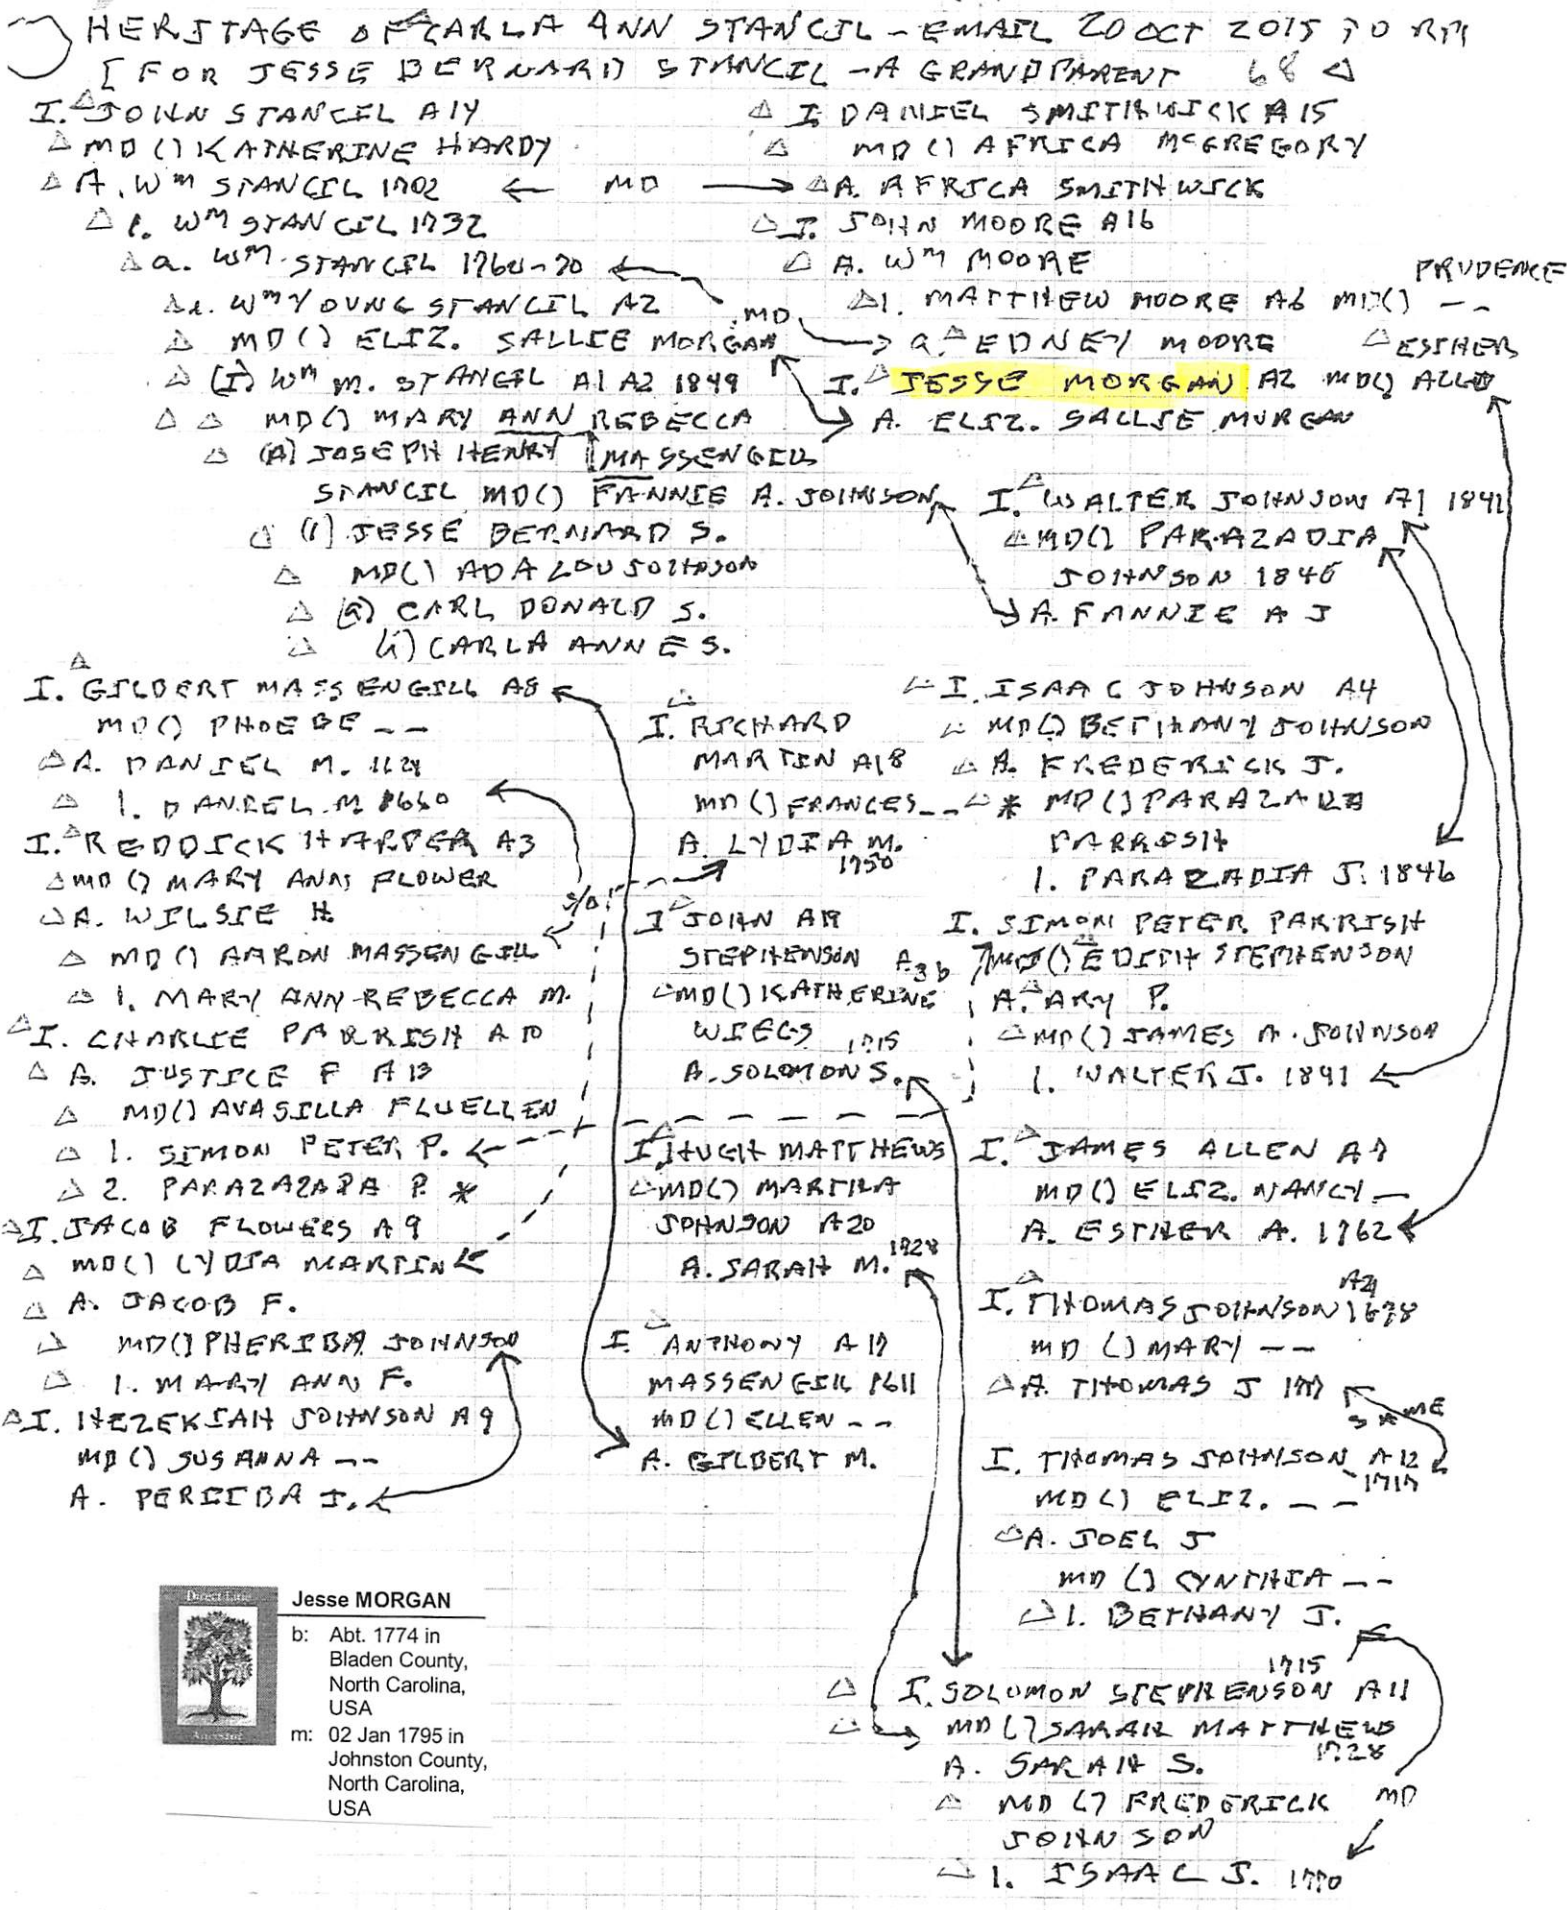 HERITAGE OF CARLA ANN STANCIL - EMAIL 20 OCT 2015 TO
[FOR JESSE BERNARD STANCIL - A GRANDPARENT 68
I. JOHN STANCIL A14
MD () KATHERINE HARDY
A. Wm STANCIL 1702 ← MD →
1. Wm STANCIL 1732
a. Wm. STANCIL 1760-70
Wm YOUNG STANCIL A2
MD
MD () ELIZ. SALLIE MORGAN
(I) Wm M. STANCIL A1 A2 1849
MD () MARY ANN REBECCA
MASSENGILL
(A) JOSEPH HENRY
STANCIL MD () FANNIE A. JOHNSON
(1) JESSE BERNARD S.
MD () ADA LOU JOHNSON
(a) CARL DONALD S.
(i) CARLA ANNE S.
I. DANIEL SMITHWICK A15
MD () AFRICA McGREGORY
A. AFRICA SMITHWICK
I. JOHN MOORE A16
A. Wm MOORE
1. MATTHEW MOORE A6 MD () -- PRUDENCE
a. EDNEY MOORE
I. JESSE MORGAN A2 MD () ESTHER ALLEN
A. ELIZ. SALLIE MORGAN
I. WALTER JOHNSON A1 1841
MD () PARAZADIA
JOHNSON 1846
A. FANNIE A J
I. GILBERT MASSENGILL A8
MD () PHOEBE --
A. DANIEL M.
1. DANIEL M 1680
I. REDDICK HARPER A3
MD () MARY ANN FLOWER
A. WILSIE H.
MD () AARON MASSENGILL
1. MARY ANN REBECCA M.
S/O
I. CHARLIE PARRISH A10
A. JUSTICE P A13
MD () AVASILLA FLUELLEN
1. SIMON PETER P.
2. PARAZAZADA P. *
I. JACOB FLOWERS A9
MD () LYDIA MARTIN
A. JACOB F.
MD () PHERIBA JOHNSON
1. MARY ANN F.
I. HEZEKIAH JOHNSON A9
MD () SUSANNA --
A. PERIIBA J.
I. RICHARD
MARTIN A18
MD () FRANCES --
A. LYDIA M.
1750
I JOHN A19
STEPHENSON A3b
MD () KATHERINE
WIEGS
1715
A. SOLOMON S.
I. HUGH MATTHEWS
MD () MARTHA
JOHNSON A20
A. SARAH M. 1728
I. ANTHONY A17
MASSENGILL 1611
MD () ELLEN --
A. GILBERT M.
I. ISAAC JOHNSON A4
MD () BETHANY JOHNSON
A. FREDERICK J.
* MD () PARAZADA
PARRISH
1. PARAZADIA J. 1846
I. SIMON PETER PARRISH
MD () EDITH STEPHENSON
A. ARY P.
MD () JAMES A. JOHNSON
1. WALTER J. 1841
I. JAMES ALLEN A7
MD () ELIZ. NANCY --
A. ESTHER A. 1762
I. THOMAS JOHNSON A21 1678
MD () MARY --
A. THOMAS J 1717
SAME
I. THOMAS JOHNSON A12
1717
MD () ELIZ. --
A. JOEL J
MD () CYNTHIA --
1. BETHANY J.
1715
I. SOLOMON STEPHENSON A11
MD () SARAH MATTHEWS
1728
A. SARAH S.
MD () FREDERICK
JOHNSON
MD
1. ISAAC J. 1770
Direct Line
Ancestor
Jesse MORGAN
b: Abt. 1774 in
Bladen County,
North Carolina,
USA
m: 02 Jan 1795 in
Johnston County,
North Carolina,
USA